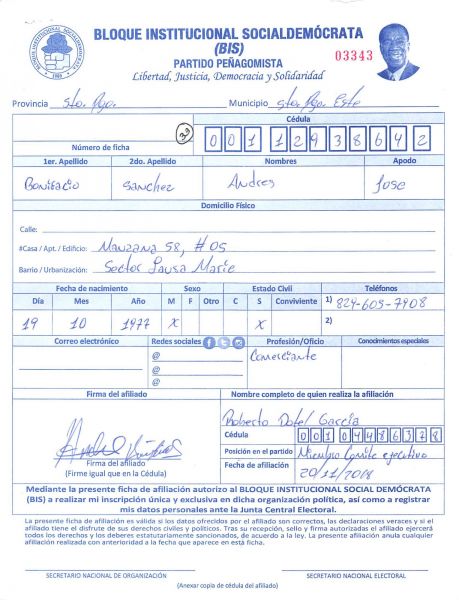 BLOQUE INSTITUCIONAL SOCIALDEMÓCRATA
(BIS)
PARTIDO PEÑAGOMISTA
Libertad, Justicia, Democracia y Solidaridad
03343
BLOQUE INSTITUCIONAL SOCIALDEMOCRATA
Provincia Sto. Dgo. Municipio Sto. Dgo. Este
Número de ficha 33 Cédula 0 0 1 1 2 9 3 8 6 4 2
1er. Apellido 2do. Apellido Nombres Apodo
Bonifacio Sanchez Andres Jose
Domicilio Físico
Calle:
#Casa / Apt. / Edificio: Manzana 58, #05
Barrio / Urbanización: Sector Marie
Fecha de nacimiento Sexo Estado Civil Teléfonos
Día Mes Año M F Otro C S Conviviente 1) 829-605-7408
19 10 1977 X X 2)
Correo electrónico Redes sociales Profesión/Oficio Conocimientos especiales
@ Comerciante
@
@
Firma del afiliado Nombre completo de quien realiza la afiliación
Roberto Dotel García
Cédula 0 0 1 0 4 4 8 6 3 7 8
Posición en el partido Miembro Comite ejecutivo
Fecha de afiliación 20/11/2018
Firma del afiliado
(Firme igual que en la Cédula)
Mediante la presente ficha de afiliación autorizo al BLOQUE INSTITUCIONAL SOCIAL DEMÓCRATA
(BIS) a realizar mi inscripción única y exclusiva en dicha organización política, así como a registrar
mis datos personales ante la Junta Central Electoral.
La presente ficha de afiliación es válida si los datos ofrecidos por el afiliado son correctos, las declaraciones veraces y si el
afiliado tiene el disfrute de sus derechos civiles y políticos. Tras su recepción, sello y firma autorizados el afiliado ejercerá
todos los derechos y los deberes estatutariamente sancionados, de acuerdo a la ley. La presente afiliación anula cualquier
afiliación realizada con anterioridad a la fecha que aparece en esta ficha.
SECRETARIO NACIONAL DE ORGANIZACIÓN SECRETARIO NACIONAL ELECTORAL
(Anexar copia de cédula del afiliado)